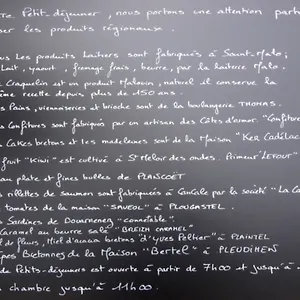 re Petit-déjeuner, nous portons une attention part
ser les produits régionaux.
us Les produits Laitiers sont fabriqués à Saint-Malo;
Lait, yaourt, fromage frais, beurre, par la laiterie Malo.
Craquelin est un produit Malouin, naturel il conserve la
ême recette depuis plus de 150 ans.
s Pains, viennoiseries et brioche sont de la boulangerie THOMAS.
Confitures sont fabriqués par un artisan des Côtes d'armor "Confiture
s Cakes bretons et les madeleines sont de la Maison "Ker Cadélac
fruit "Kiwi" est cultivé à St Meloir des ondes. Primeur "LEFOUR"
au plate et fines bulles de PLANCOËT
s rillettes de saumon sont fabriqués à Cancale par la société "La Ca
tomates de la maison "SAVEOL" à PLOUGASTEL.
s Sardines de Douarnenez "connetable".
Caramel au beurre salé "BREIZH CARAMEL"
l de fleurs, Miel d'acacia bretons d'"Yves Peltier" à PLAINTEL
êpes Bretonnes de la Maison "Bertel" à PLEUDIHEN
de Petits-déjeuners est ouverte à partir de 7h00 et jusqu'à
chambre jusqu'à 11H00.